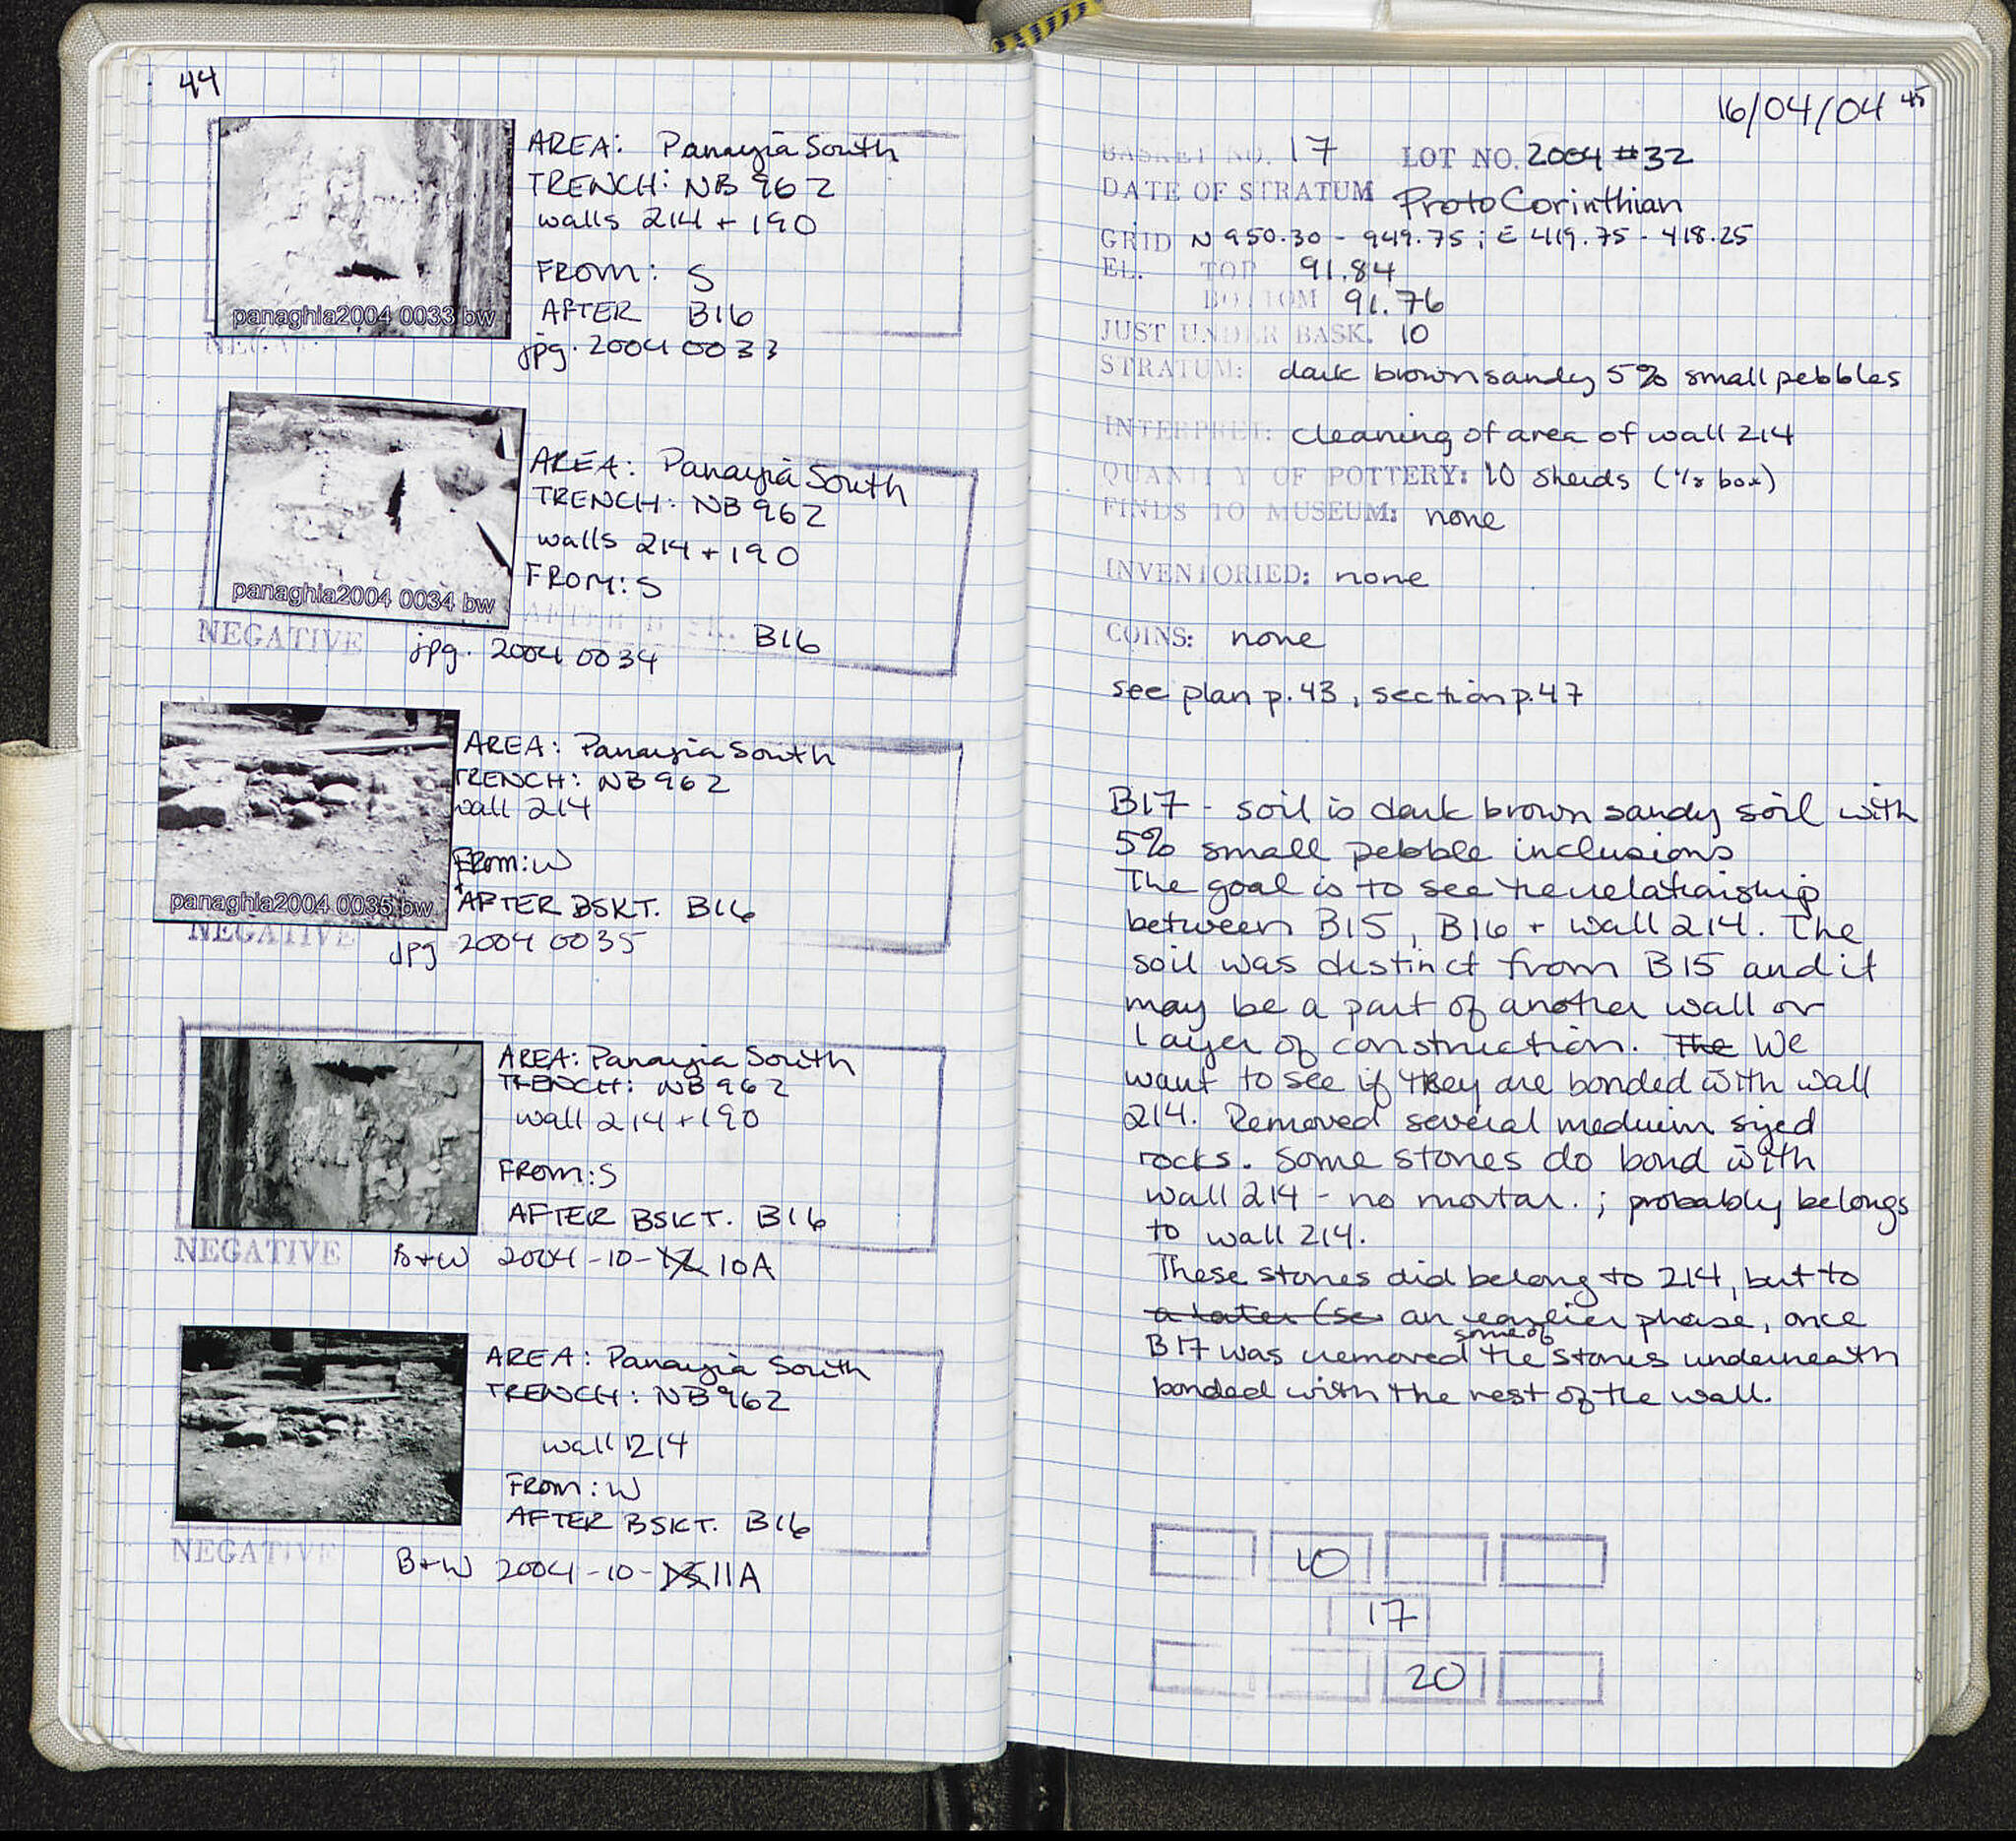 44
AREA: Panayia South
TRENCH: NB 962
walls 214 + 190
FROM: S
AFTER B16
panaghia2004 0033 bw
jpg. 2004 0033
AREA: Panayia South
TRENCH: NB 962
walls 214 + 190
FROM: S
panaghia2004 0034 bw
AFTER
NEGATIVE
B16
jpg. 2004 0034
AREA: Panayia South
TRENCH: NB 962
wall 214
FROM: W
panaghia2004 0035 bw
AFTER BSKT. B16
NEGATIVE
jpg 2004 0035
AREA: Panayia South
TRENCH: NB 962
wall 214 + 190
FROM: S
AFTER BSKT. B16
NEGATIVE B+W 2004-10-10A
AREA: Panayia South
TRENCH: NB 962
wall 214
FROM: W
AFTER BSKT. B16
NEGATIVE
B+W 2004-10-11A
16/04/04 45
BASKET NO. 17 LOT NO. 2004 #32
DATE OF STRATUM ProtoCorinthian
GRID N 950.30 - 949.75 ; E 419.75 - 418.25
EL. TOP 91.84
BOTTOM 91.76
JUST UNDER BASK. 10
STRATUM: dark brown sandy 5% small pebbles
INTERPRET: cleaning of area of wall 214
QUANTITY OF POTTERY: 10 sherds (1/8 box)
FINDS TO MUSEUM: none
INVENTORIED: none
COINS: none
see plan p. 43, section p. 47
B17 - soil is dark brown sandy soil with
5% small pebble inclusions
The goal is to see the relationship
between B15, B16 + wall 214. The
soil was distinct from B15 and it
may be a part of another wall or
layer of construction. The We
want to see if they are bonded with wall
214. Removed several medium sized
rocks. Some stones do bond with
wall 214 - no mortar. ; probably belongs
to wall 214.
These stones did belong to 214, but to
a later (se an earlier phase, once
B17 was removed some of the stones underneath
bonded with the rest of the wall.
10
17
20